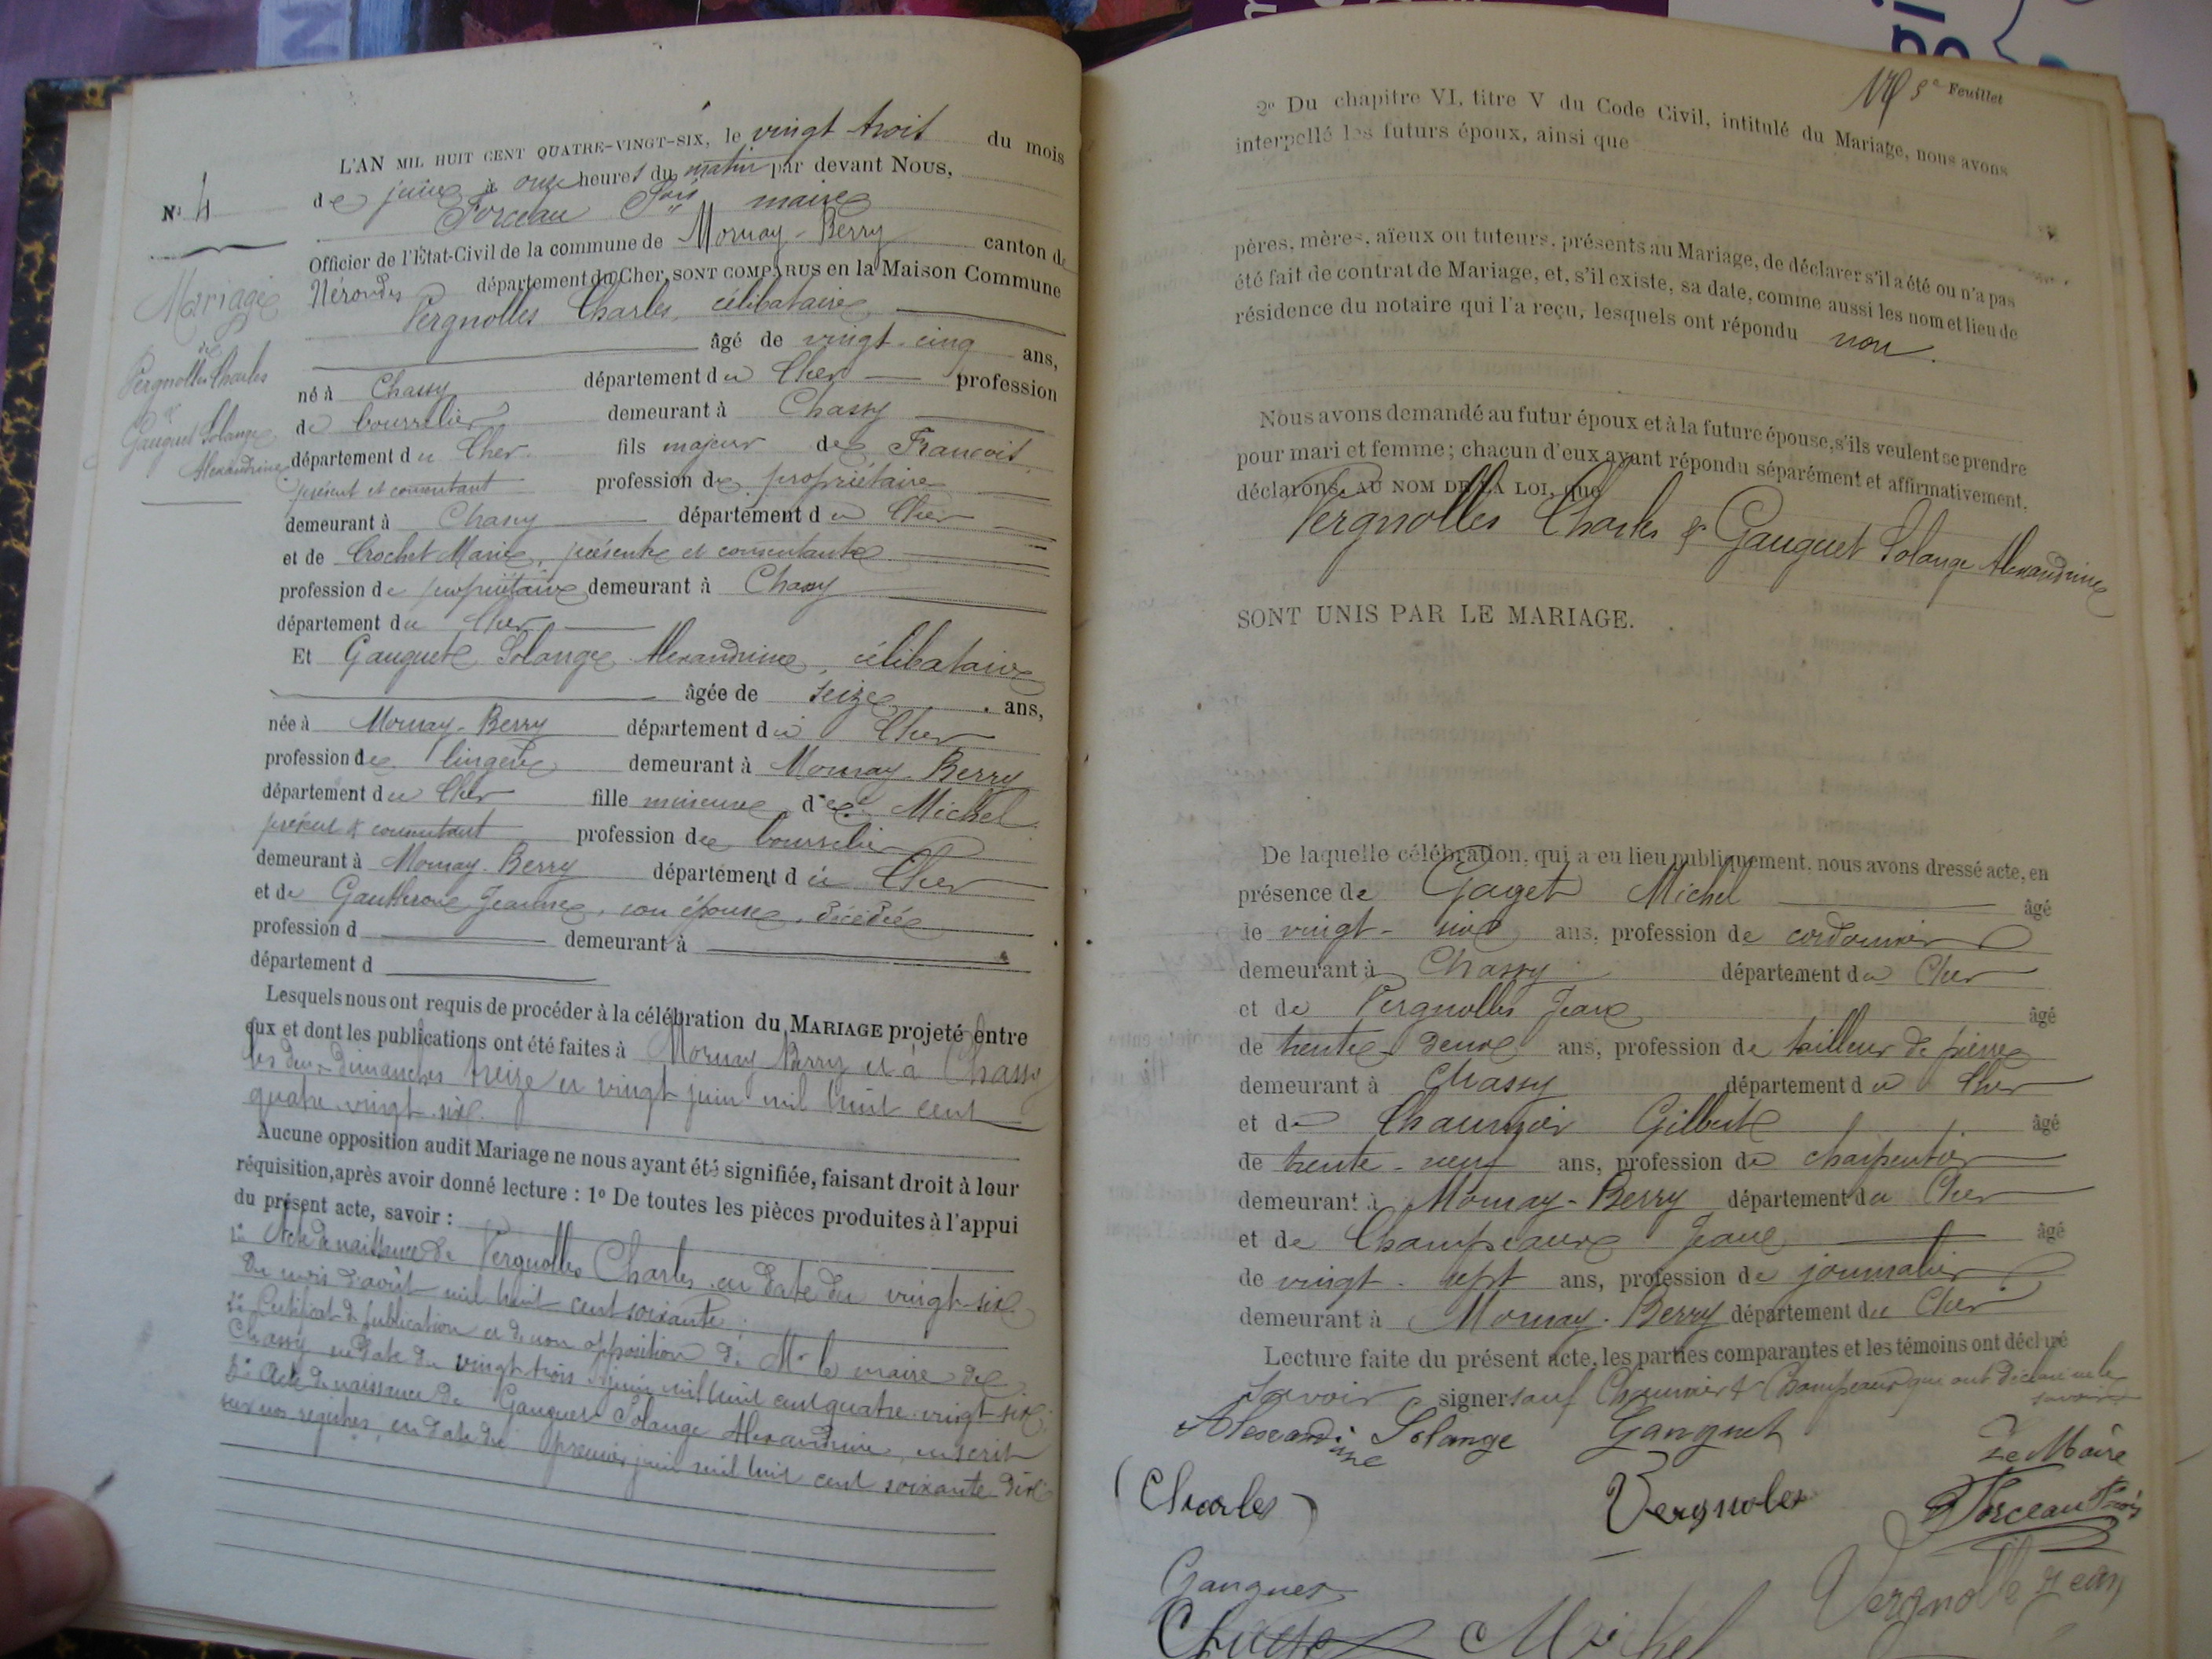 L'AN MIL HUIT CENT QUATRE-VINGT-SIX, le vingt trois du mois
de juin à onze heures du matin par devant Nous,
Forceau Fois maire
Officier de l'État-Civil de la commune de Mornay-Berry canton de
Nérondes département du Cher, SONT COMPARUS en la Maison Commune
Vergnolles Charles, célibataire
âgé de vingt-cinq ans,
né à Chassy département du Cher profession
de bourrelier demeurant à Chassy
département du Cher fils majeur de François
présent et consentant profession de propriétaire
demeurant à Chassy département du Cher
et de Crochet Marie, présente et consentante
profession de propriétaire demeurant à Chassy
département du Cher
Et Gauguet Solange Alexandrine, célibataire
âgée de seize ans,
née à Mornay-Berry département du Cher
profession de lingère demeurant à Mornay-Berry
département du Cher fille mineure de Michel
présent & consentant profession de bourrelier
demeurant à Mornay-Berry département du Cher
et de Gautheron Jeanne, son épouse, décédée
profession d demeurant à
département d
Lesquels nous ont requis de procéder à la célébration du MARIAGE projeté entre
eux et dont les publications ont été faites à Mornay Berry et à Chassy
les deux dimanches treize et vingt juin mil huit cent
quatre-vingt-six.
Aucune opposition audit Mariage ne nous ayant été signifiée, faisant droit à leur
réquisition, après avoir donné lecture : 1° De toutes les pièces produites à l'appui
du présent acte, savoir :
1° Acte de naissance de Vergnolles Charles en date du vingt-six
du mois d'août mil huit cent soixante;
2° Certificat de publication et de non opposition de Mr le maire de
Chassy en date du vingt trois juin mil huit cent quatre-vingt-six;
3° Acte de naissance de Gauguet Solange Alexandrine, inscrit
sur nos registres, en date du premier juin mil huit cent soixante dix
N° 4
Mariage
de
Vergnolles Charles
&
Gauguet Solange
Alexandrine
5e Feuillet
2° Du chapitre VI, titre V du Code Civil, intitulé du Mariage, nous avons
interpellé les futurs époux, ainsi que
pères, mères, aïeux ou tuteurs, présents au Mariage, de déclarer s'il a été ou n'a pas
été fait de contrat de Mariage, et, s'il existe, sa date, comme aussi les nom et lieu de
résidence du notaire qui l'a reçu, lesquels ont répondu non.
Nous avons demandé au futur époux et à la future épouse, s'ils veulent se prendre
pour mari et femme; chacun d'eux ayant répondu séparément et affirmativement,
déclarons, AU NOM DE LA LOI, que
Vergnolles Charles & Gauguet Solange Alexandrine
SONT UNIS PAR LE MARIAGE.
De laquelle célébration, qui a eu lieu publiquement, nous avons dressé acte, en
présence de Gaget Michel âgé
de vingt-six ans, profession de cordonnier
demeurant à Chassy département du Cher
et de Vergnolles Jean âgé
de trente-deux ans, profession de tailleur de pierre
demeurant à Chassy département du Cher
et de Chaumier Gilbert âgé
de trente-neuf ans, profession de charpentier
demeurant à Mornay-Berry département du Cher
et de Champeaux Jean âgé
de vingt-sept ans, profession de journalier
demeurant à Mornay-Berry département du Cher
Lecture faite du présent acte, les parties comparantes et les témoins ont déclaré
savoir signer sauf Chaumier & Champeaux qui ont déclaré ne le
savoir
Alexandrine Solange Gauguet
Le Maire
Charles Vergnoles Forceau Fois
Gauguet Vergnolle Jean
Michel